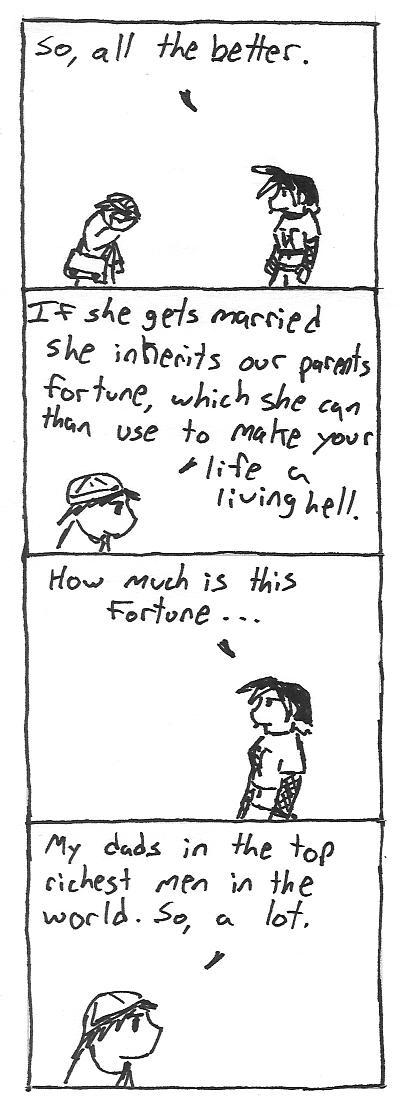 So, all the better.
If she gets married
she inherits our parents
fortune, which she can
than use to make your
life a
living hell.
How much is this
Fortune...
My dads in the top
richest men in the
world. So, a lot.